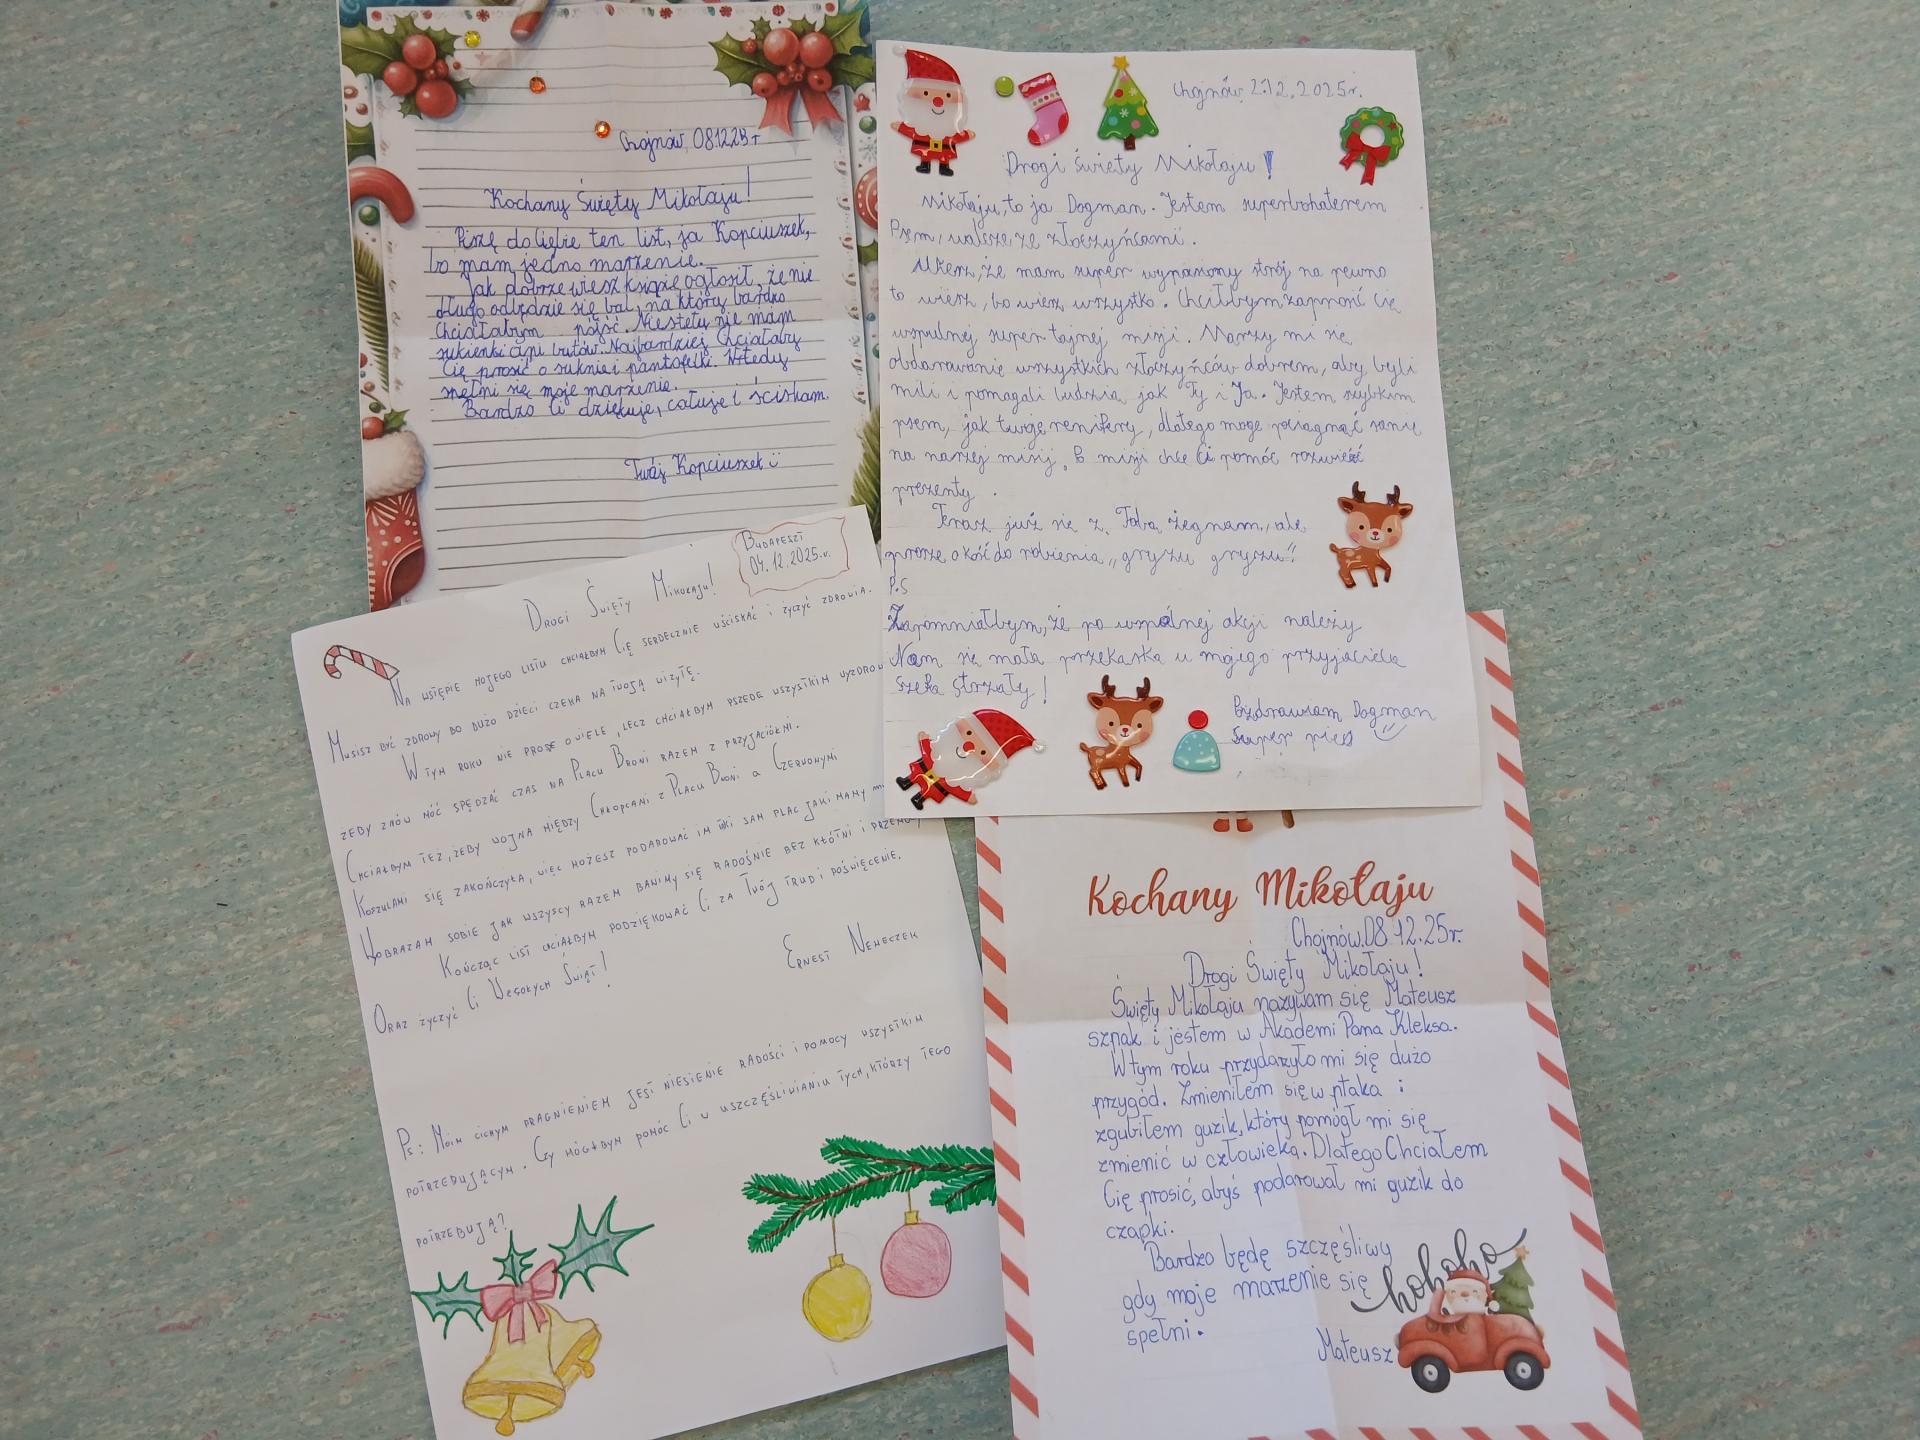 Chojnów 08.12.25r
Kochany Święty Mikołaju!
Piszę do Ciebie ten list, ja Kopciuszek,
bo mam jedno marzenie.
Jak dobrze wiesz książe ogłosił, że nie
długo odbędzie się bal, na który bardzo
Chciałabym pójść. Niestety nie mam
sukienki ani butów. Najbardziej Chciałaby
Cię prosić o suknie i pantofelki. Wtedy
spełni się moje marzenie.
Bardzo Ci dziękuje, całuje i ściskam.
Twój Kopciuszek
Chojnów, 2.12.2025r.
Drogi Święty Mikołaju!
Mikołaju, to ja Dogman. Jestem superbohaterem
Psem, walcze ze złoczyńcami.
Wiesz, że mam super wypasiony strój na pewno
to wiesz, bo wiesz wszystko. Chciałbym zaprosić Cię
wspulnej super tajnej misji. Marzy mi się
obdarowanie wszystkich złoczyńców dobrem, aby byli
mili i pomagali ludzia jak Ty i Ja. Jestem szybkim
psem, jak twoje renifery, dlatego moge pociągnąć sanie
na naszej misij. B misji chce Ci pomóc rozwieść
prezenty.
Teraz już się z Tobą żegnam, ale
prosze o kość do robienia „gryzu gryzu"!
P.S
Zapomniałbym, że po wspólnej akcji należy
Nam się mała przekąska u mojego przyjaciela
Szefa Strzały!
Pozdrawiam Dogman
Super pies
Budapeszt
04.12.2025.r.
Drogi Święty Mikołaju!
Na wstępie mojego listu chciałbym Cię serdecznie uściskać i życzyć zdrowia.
Musisz być zdrowy bo dużo dzieci czeka na twoją wizytę.
W tym roku nie proszę o wiele, lecz chciałbym pszede wszystkim wyzdrow
żeby znów móc spędzać czas na Placu Broni razem z przyjaciółmi.
Chciałbym też, żeby wojna między Chłopcami z Placu Broni a Czerwonymi
Koszulami się zakończyła, więc możesz podarować im taki sam plac jaki mamy
Wobrażam sobie jak wszyscy razem bawimy się radośnie bez kłótni i przemocy
Kończąc list chciałbym podziękować Ci za Twój trud i poświęcenie.
Oraz życzyć Ci Wesołych Świąt!
Ernest Nemeczek
Ps: Moim cichym pragnieniem jest niesienie radości i pomocy wszystkim
potrzebującym. Czy mógłbym pomóc Ci w uszczęśliwianiu tych, którzy tego
potrzebują?
Kochany Mikołaju
Chojnów 08.12.25r.
Drogi Święty Mikołaju!
Święty Mikołaju nazywam się Mateusz
szpak i jestem w Akademi Pana Kleksa.
W tym roku przydarzyło mi się dużo
przygód. Zmieniłem się w ptaka i
zgubiłem guzik, który pomógł mi się
zmienić w człowieka. Dlatego Chciałem
Cię prosić, abyś podarował mi guzik do
czapki.
Bardzo będę szczęśliwy
gdy moje marzenie się
spełni.
hohoho
Mateusz